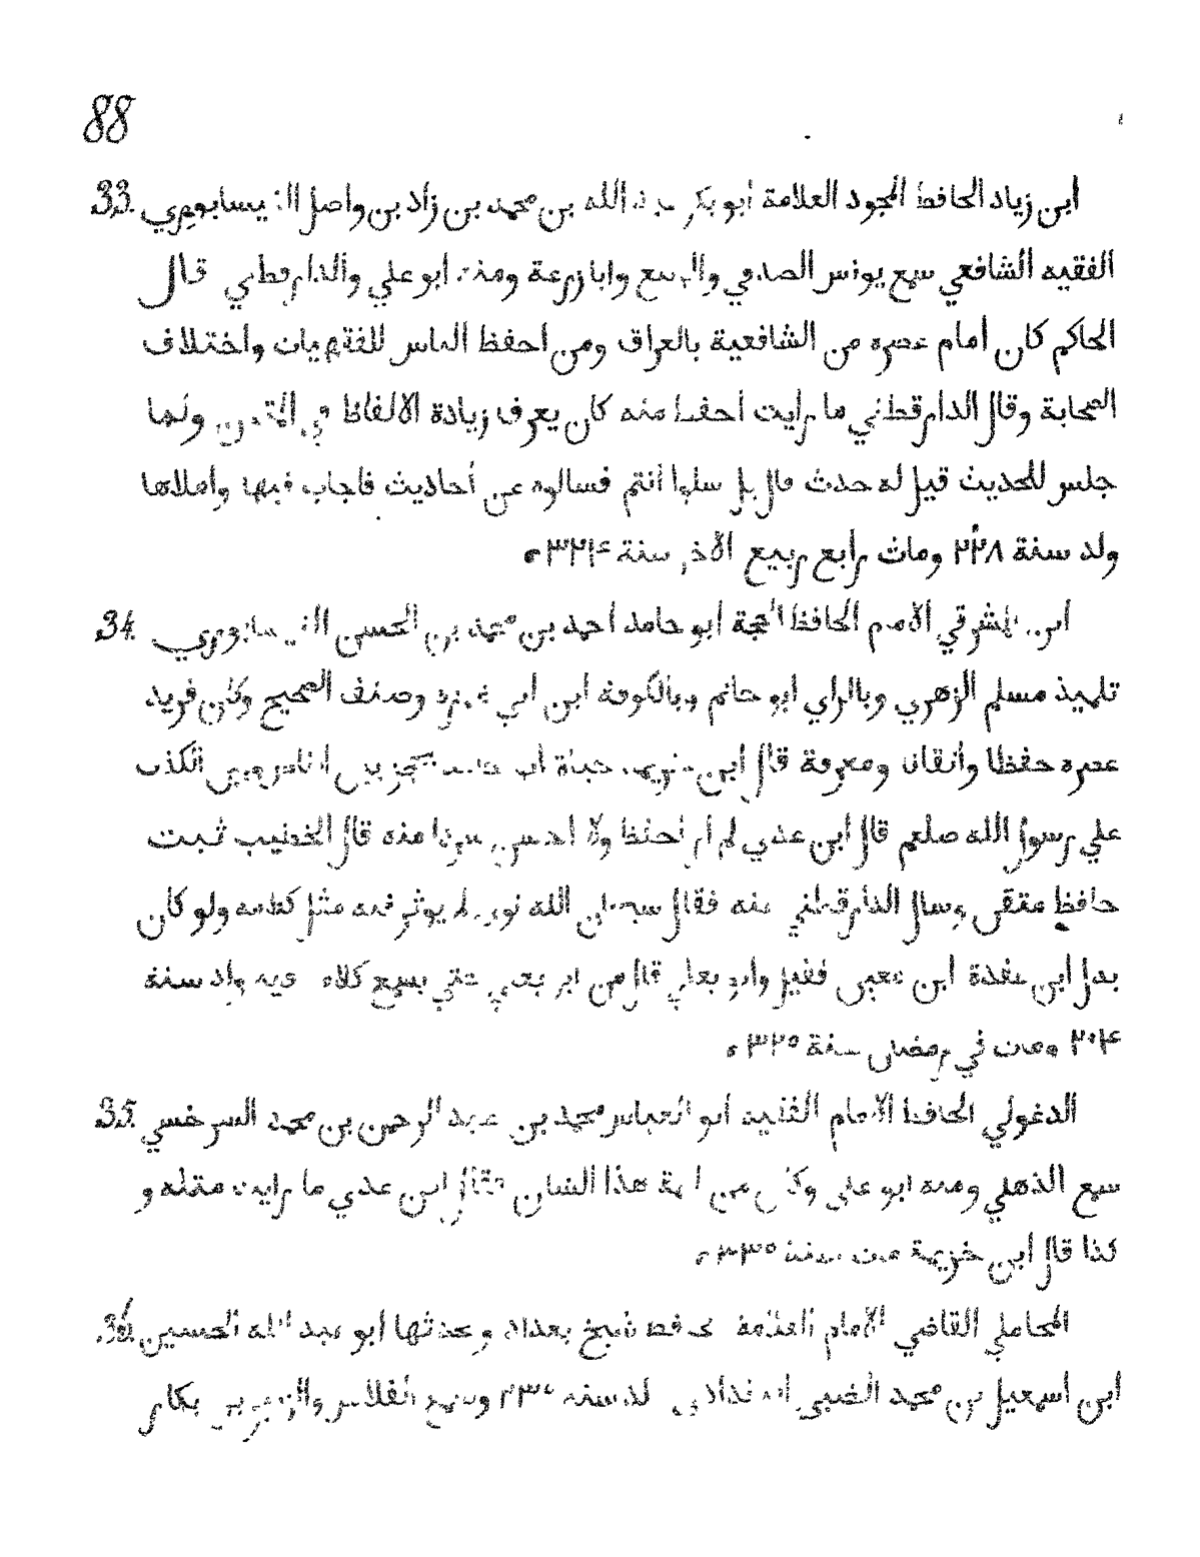 88
33. ابن زياد الحافظ المجود العلامة ابو بكر عبد الله بن محمد بن زاد بن واصل النيسابوري
الفقيه الشافعي سمع يونس الصدفي والربيع وابا زرعة ومنه ابو علي والدارقطني قال
الحاكم كان امام عصره من الشافعية بالعراق ومن احفظ الناس للفقهيات واختلاف
الصحابة وقال الدارقطني ما رايت احفظ منه كان يعرف زيادة الالفاظ في المتون ولما
جلس للحديث قيل له حدث قال بل سلوا انتم فسالوه عن أحاديث فاجاب فيها واملاها
ولد سنة ٢٣٨ ومات رابع ربيع الاخر سنة ٣٢٤
34. ابن الشرقي الامام الحافظ الحجة ابو حامد احمد بن محمد بن الحسن النيسابوري
تلميذ مسلم الزهري وبالراي ابو حاتم وبالكوفة ابن ابي غرزة وصنف الصحيح وكان فريد
عصره حفظا واتقانا ومعرفة قال ابن خزيمة حياة ابي حامد تحجز بين الناس وبين الكذب
علي رسول الله صلعم قال ابن عدي لم ار احفظ ولا احسن سردا منه قال الخطيب ثبت
حافظ متقن وسال الدارقطني عنه فقال سبحان الله نوير لم يوثر فيه مثل كلامه ولو كان
بدل ابن عقدة ابن معين فقيل وابو علي قال من ابو علي حتي يسمع كلامه فيه ولد سنة
٢٠٤ ومات في رمضان سنة ٣٢٥
35. الدغولي الحافظ الامام الفقيه ابو العباس محمد بن عبد الرحمن بن محمد السرخسي
سمع الذهلي ومنه ابو علي وكان من ايمة هذا الشان قال ابن عدي ما رايت مثله و
كذا قال ابن خزيمة مات سنة
36. المحاملي القاضي الامام العلامة الحافظ شيخ بغداد ومحدثها ابو عبد الله الحسين
ابن اسمعيل بن محمد الضبي البغدادي ولد سنة وسمع الفلاس والزبير بن بكار